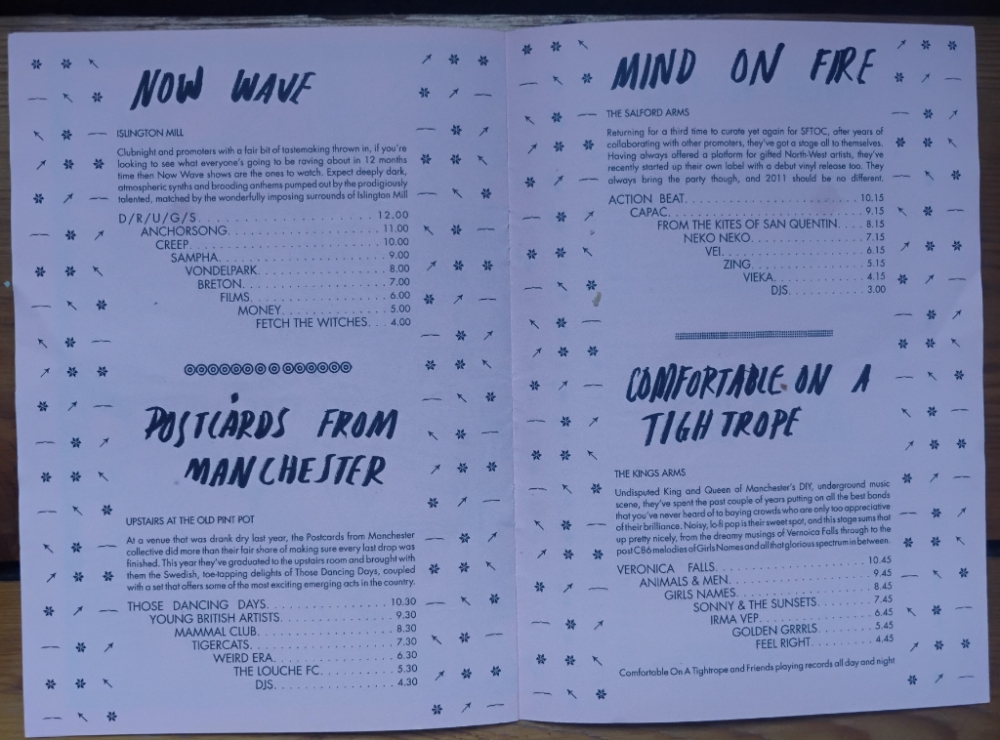 NOW WAVE
ISLINGTON MILL
Clubnight and promoters with a fair bit of tastemaking thrown in, if you're
looking to see what everyone's going to be raving about in 12 months
time then Now Wave shows are the ones to watch. Expect deeply dark,
atmospheric synths and brooding anthems pumped out by the prodigiously
talented, matched by the wonderfully imposing surrounds of Islington Mill
D/R/U/G/S. . . . . . . . . . . . . . . . . . . . 12.00
ANCHORSONG. . . . . . . . . . . . . . . . . 11.00
CREEP. . . . . . . . . . . . . . . . . . . . 10.00
SAMPHA. . . . . . . . . . . . . . . . . 9.00
VONDELPARK. . . . . . . . . . . . . . 8.00
BRETON. . . . . . . . . . . . . . . 7.00
FILMS. . . . . . . . . . . . . . . 6.00
MONEY. . . . . . . . . . . . 5.00
FETCH THE WITCHES. . . 4.00
POSTCARDS FROM
MANCHESTER
UPSTAIRS AT THE OLD PINT POT
At a venue that was drank dry last year, the Postcards from Manchester
collective did more than their fair share of making sure every last drop was
finished. This year they've graduated to the upstairs room and brought with
them the Swedish, toe-tapping delights of Those Dancing Days, coupled
with a set that offers some of the most exciting emerging acts in the country.
THOSE DANCING DAYS. . . . . . . . . . . . . . 10.30
YOUNG BRITISH ARTISTS. . . . . . . . . . . . . 9.30
MAMMAL CLUB. . . . . . . . . . . . . . . 8.30
TIGERCATS. . . . . . . . . . . . . . . . 7.30
WEIRD ERA. . . . . . . . . . . . . . 6.30
THE LOUCHE FC. . . . . . . . . 5.30
DJS. . . . . . . . . . . . . . . . 4.30
MIND ON FIRE
THE SALFORD ARMS
Returning for a third time to curate yet again for SFTOC, after years of
collaborating with other promoters, they've got a stage all to themselves.
Having always offered a platform for gifted North-West artists, they've
recently started up their own label with a debut vinyl release too. They
always bring the party though, and 2011 should be no different.
ACTION BEAT. . . . . . . . . . . . . . . . . . . . 10.15
CAPAC. . . . . . . . . . . . . . . . . . . . . 9.15
FROM THE KITES OF SAN QUENTIN. . . . 8.15
NEKO NEKO. . . . . . . . . . . . . . 7.15
VEI. . . . . . . . . . . . . . . . . . 6.15
ZING. . . . . . . . . . . . . . . 5.15
VIEKA. . . . . . . . . . . . . 4.15
DJS. . . . . . . . . . . . 3.00
COMFORTABLE ON A
TIGHTROPE
THE KINGS ARMS
Undisputed King and Queen of Manchester's DIY, underground music
scene, they've spent the past couple of years putting on all the best bands
that you've never heard of to baying crowds who are only too appreciative
of their brilliance. Noisy, lo-fi pop is their sweet spot, and this stage sums that
up pretty nicely, from the dreamy musings of Vernoica Falls through to the
post C86 melodies of Girls Names and all that glorious spectrum in between.
VERONICA FALLS. . . . . . . . . . . . . . . . . 10.45
ANIMALS & MEN. . . . . . . . . . . . . . . . 9.45
GIRLS NAMES. . . . . . . . . . . . . . . 8.45
SONNY & THE SUNSETS. . . . . . . . 7.45
IRMA VEP. . . . . . . . . . . . . . . 6.45
GOLDEN GRRRLS. . . . . . . . . 5.45
FEEL RIGHT. . . . . . . . . . . 4.45
Comfortable On A Tightrope and Friends playing records all day and night